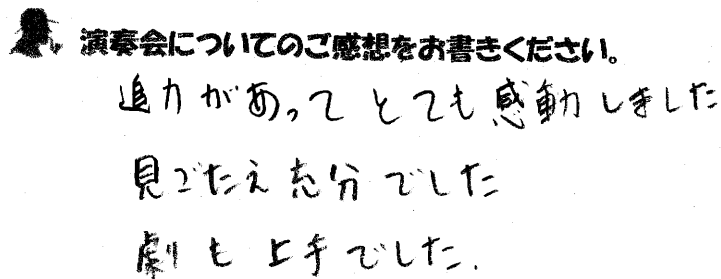 演奏会についてのご感想をお書きください。
迫力があってとても感動しました
見ごたえ充分でした
劇も上手でした.